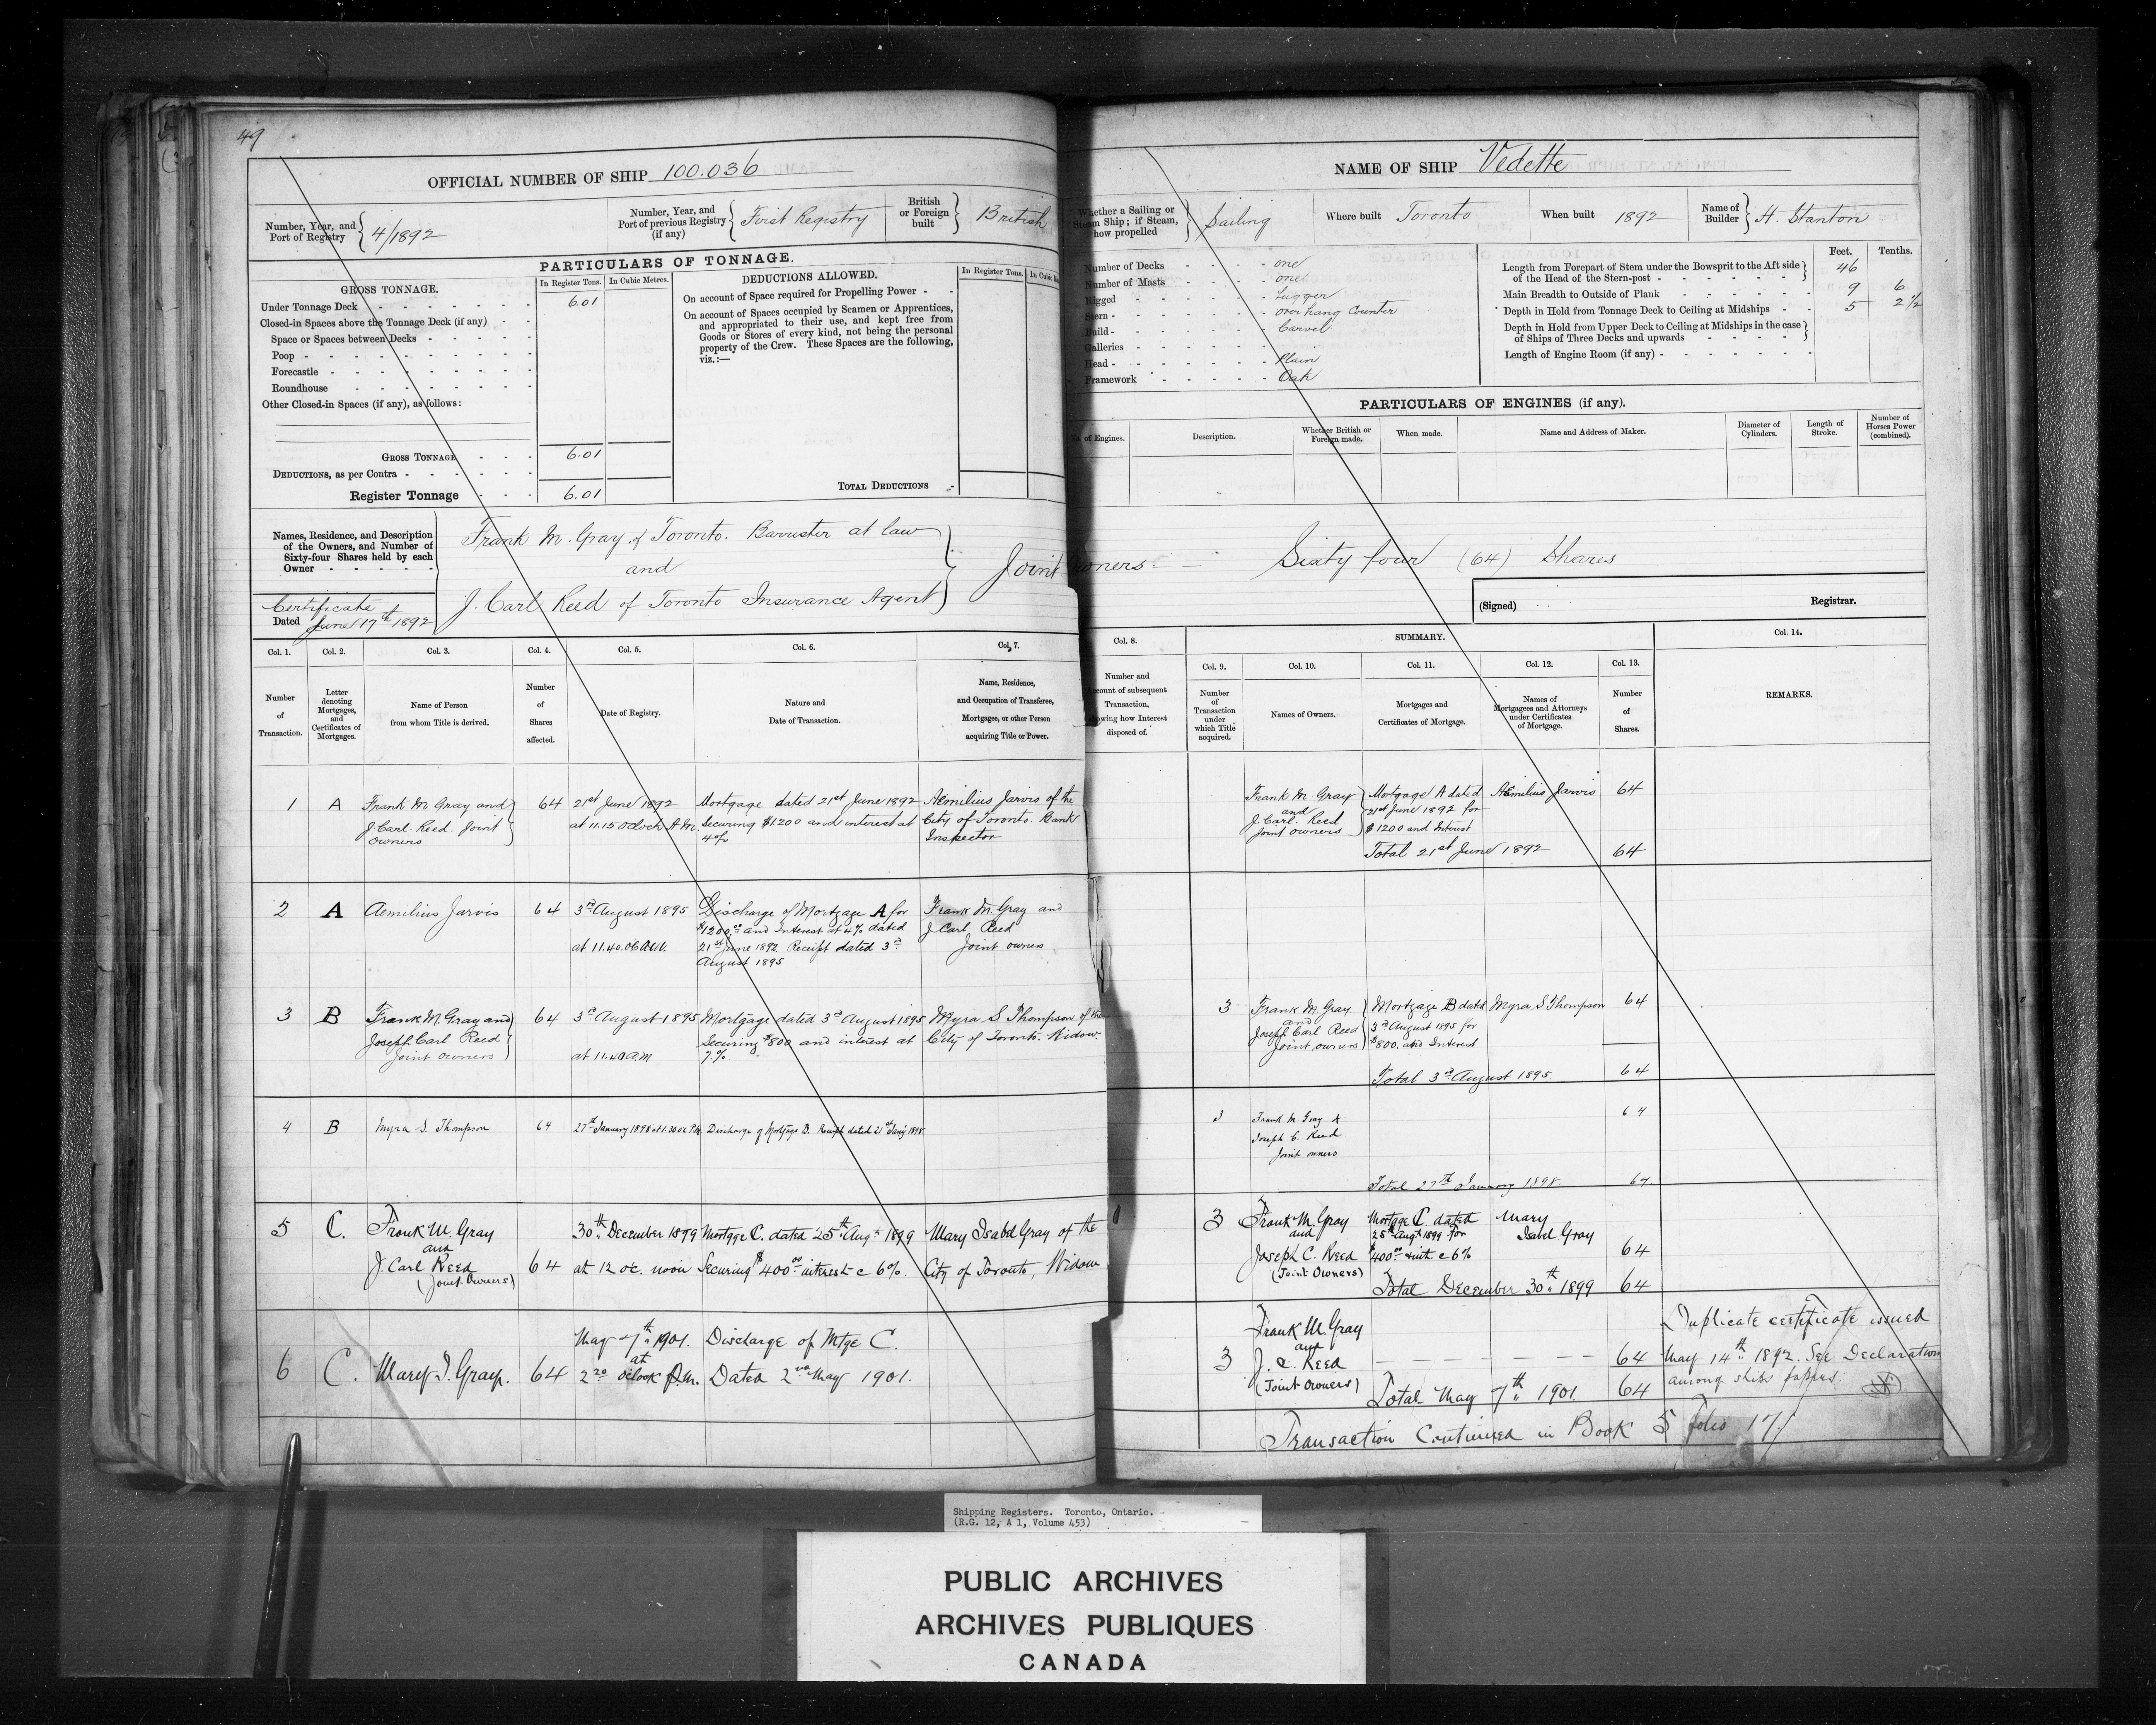 49
OFFICIAL NUMBER OF SHIP 100.036
Number, Year, and
Port of Registry
4/1892
Number, Year, and
Port of previous Registry
(if any)
First Registry
British
or Foreign
built
British
PARTICULARS OF TONNAGE.
GROSS TONNAGE.
In Register Tons.
In Cubic Metres.
Under Tonnage Deck 6.01
Closed-in Spaces above the Tonnage Deck (if any)
Space or Spaces between Decks
Poop
Forecastle
Roundhouse
Other Closed-in Spaces (if any), as follows:
GROSS TONNAGE 6.01
DEDUCTIONS, as per Contra
Register Tonnage 6.01
DEDUCTIONS ALLOWED.
In Register Tons.
On account of Space required for Propelling Power
On account of Spaces occupied by Seamen or Apprentices,
and appropriated to their use, and kept free from
Goods or Stores of every kind, not being the personal
property of the Crew. These Spaces are the following,
viz.:—
TOTAL DEDUCTIONS
NAME OF SHIP Vedette
Whether a Sailing or
Steam Ship; if Steam,
how propelled
Sailing
Where built Toronto
When built 1892
Name of
Builder
H. Stanton
Number of Decks one
Number of Masts one
Rigged Lugger
Stern overhang Counter
Build Carvel
Galleries
Head Plain
Framework Oak
Feet. Tenths.
Length from Forepart of Stem under the Bowsprit to the Aft side
of the Head of the Stern-post 46
Main Breadth to Outside of Plank 9 6
Depth in Hold from Tonnage Deck to Ceiling at Midships 5 2 1/2
Depth in Hold from Upper Deck to Ceiling at Midships in the case
of Ships of Three Decks and upwards
Length of Engine Room (if any)
PARTICULARS OF ENGINES (if any).
No. of Engines.
Description.
Whether British or
Foreign made.
When made.
Name and Address of Maker.
Diameter of
Cylinders.
Length of
Stroke.
Number of
Horses Power
(combined).
Names, Residence, and Description
of the Owners, and Number of
Sixty-four Shares held by each
Owner
Frank M. Gray of Toronto. Barrister at law
and
J. Carl Reed of Toronto Insurance Agent
Joint Owners
Sixty four (64) Shares
Certificate
Dated June 17th 1892
(Signed) Registrar.
Col. 1.
Number
of
Transaction.
Col. 2.
Letter
denoting
Mortgages,
and
Certificates of
Mortgages.
Col. 3.
Name of Person
from whom Title is derived.
Col. 4.
Number
of
Shares
affected.
Col. 5.
Date of Registry.
Col. 6.
Nature and
Date of Transaction.
Col. 7.
Name, Residence,
and Occupation of Transferee,
Mortgagee, or other Person
acquiring Title or Power.
Col. 8.
Number and
Account of subsequent
Transaction,
showing how Interest
disposed of.
SUMMARY.
Col. 9.
Number
of
Transaction
under
which Title
acquired.
Col. 10.
Names of Owners.
Col. 11.
Mortgages and
Certificates of Mortgage.
Col. 12.
Names of
Mortgagees and Attorneys
under Certificates
of Mortgage.
Col. 13.
Number
of
Shares.
Col. 14.
REMARKS.
1 A
Frank M Gray and
J. Carl. Reed. Joint
owners
64
21st June 1892
at 11.15 Oclock A.M.
Mortgage dated 21st June 1892
Securing $1200 and interest at
4%
Aemilius Jarvis of the
City of Toronto. Bank
Inspector
Frank M. Gray
and
J. Carl. Reed
Joint owners
Mortgage A dated
21st June 1892 for
$1200 and Interest
Aemilius Jarvis
64
Total 21st June 1892 64
2 A
Aemilius Jarvis
64
3rd August 1895
at 11.40
Discharge of Mortgage A for
$1200.00 and Interest at 4% dated
21st June 1892 Receipt dated 3rd
August 1895
Frank M. Gray and
J Carl Reed
Joint owners
3 B
Frank M. Gray and
Joseph Carl Reed
Joint Owners
64
3rd August 1895
at 11.40 a.m
Mortgage dated 3rd August 1895
Securing $800 and interest at
7%
Myra S Thompson of the
City of Toronto. Widow.
3
Frank M. Gray
and
Joseph Carl Reed
Joint owners
Mortgage B dated
3rd August 1895 for
$800. and Interest
Myra S Thompson
64
Total 3rd August 1895. 64
4 B
Myra S. Thompson
64
27th January 1898 at 1.30 oc P.M.
Discharge of Mortgage B. Receipt dated 21st Jany 1898
3
Frank M Gray &
Joseph C. Reed
Joint owners
64
Total 27th January 1898. 64
5 C.
Frank M. Gray
and
J. Carl Reed
(Joint Owners)
64
30th December 1899
at 12 oc. noon
Mortgge C. dated 25th Augt 1899
Securing $400.00 interest @ 6%.
Mary Isabel Gray of the
City of Toronto, Widow
3
Frank M. Gray
and
Joseph C. Reed
(Joint Owners)
Mortgge C. dated
25th Augt 1899 for
$400.00 + int. @ 6%
Mary
Isabel Gray
64
Total December 30th 1899 64
6 C.
Mary I. Gray.
64
May 7th 1901.
at
2.20 oclock P.m.
Discharge of Mtge C.
Dated 2nd May 1901.
3
Frank M. Gray
and
J. C. Reed
(Joint Owners)
64
Total May 7th 1901 64
Duplicate certificate issued
May 14th 1892. See Declaration
among ships papers.
Transaction Continued in Book 5 folio 17
Shipping Registers. Toronto, Ontario.
(R.G. 12, A 1, Volume 453)
PUBLIC ARCHIVES
ARCHIVES PUBLIQUES
CANADA